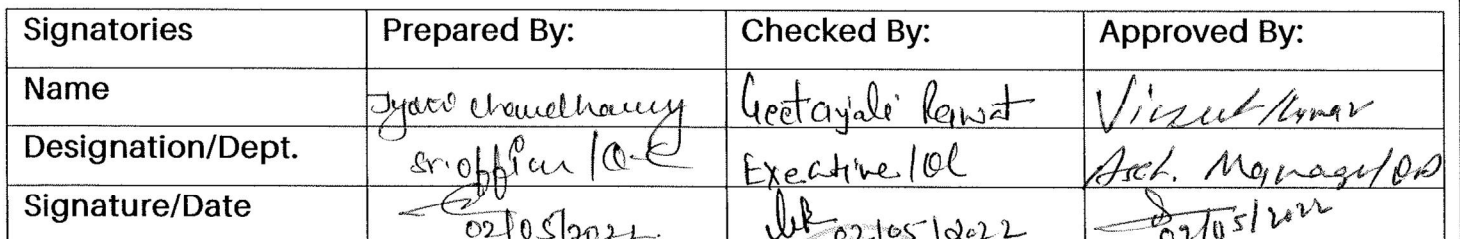 Signatories Prepared By: Checked By: Approved By:
Name Jyoti Chaudhary Geetajali Rawat Kumar
Designation/Dept. Sr. officer / Q.C Executive / QC Asst. Manager / QA
Signature/Date 02/05/2022 02/05/2022 02/05/2022